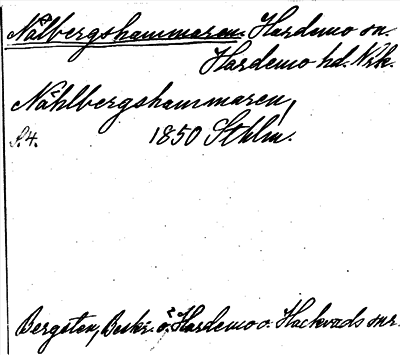 Nålbergshammaren. Hardemo sn.
Hardemo hd. Nrk.
Nåhlbergshammaren,
S. 4. 1850 Sthlm.
Bergsten, Beskr. ö. Hardemo o. Hackvads snr.